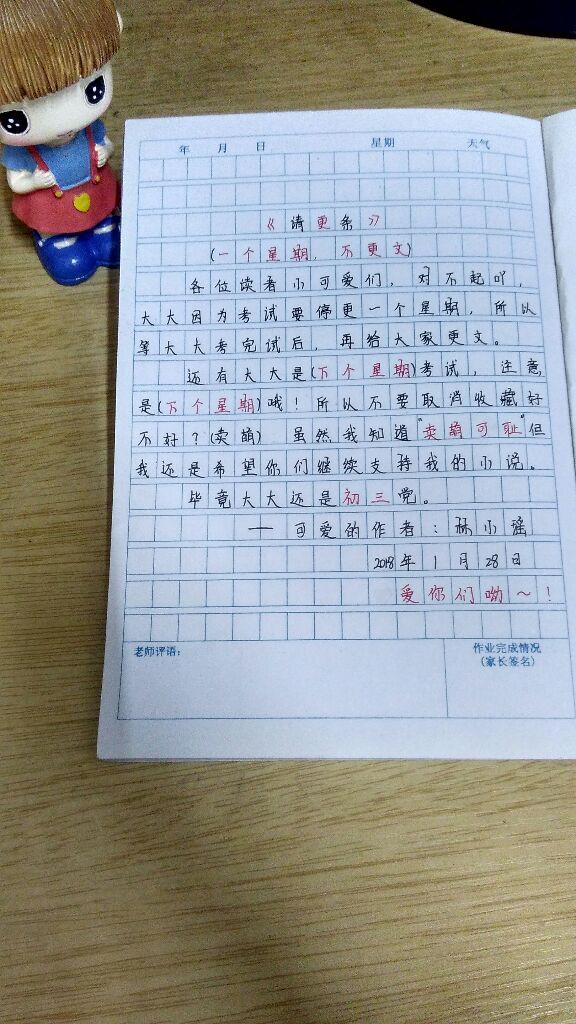 年 月 日 星期 天气
《请更条》
(一个星期,不更文)
各位读者小可爱们,对不起吖,
大大因为考试要停更一个星期,所以
等大大考完试后,再给大家更文。
还有大大是(下个星期)考试,注意
是(下个星期)哦!所以不要取消收藏好
不好?(卖萌) 虽然我知道"卖萌可耻"但
我还是希望你们继续支持我的小说。
毕竟大大还是初三党。
——可爱的作者:林小谣
2018年1月28日
爱你们呦~!
老师评语: 作业完成情况
(家长签名)